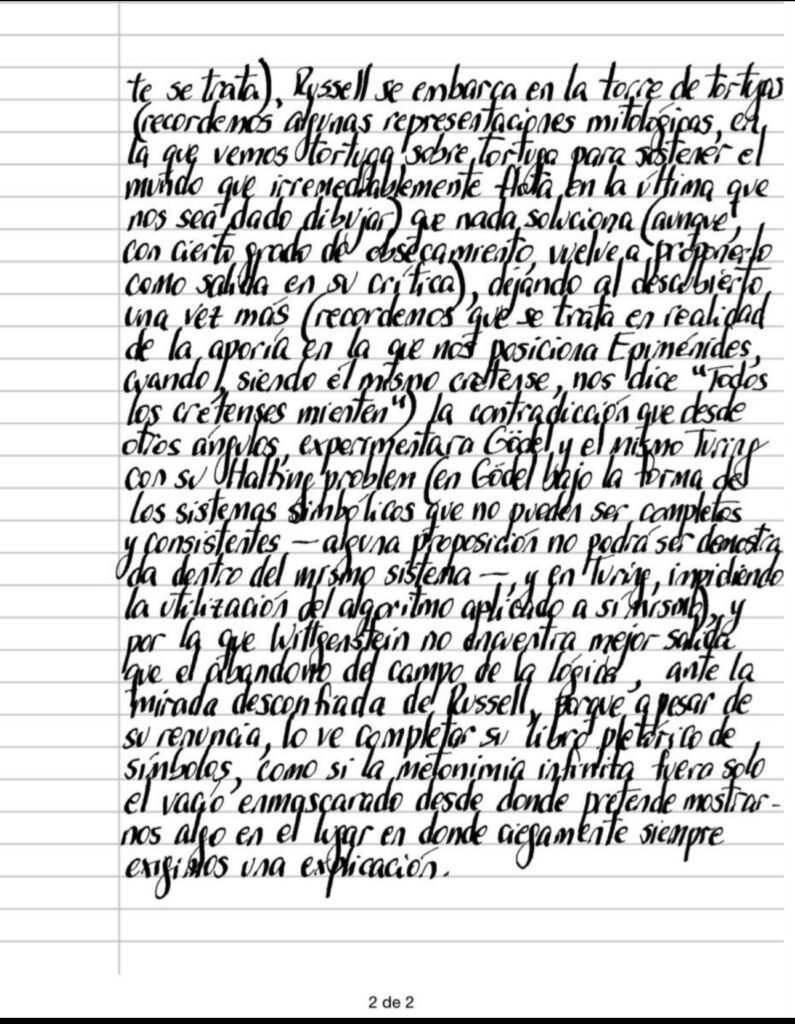 te se trata), Russell se embarca en la torre de tortugas
(recordemos algunas representaciones mitológicas, en
la que vemos tortuga sobre tortuga para sostener el
mundo que irremediablemente flota en la última que
nos sea dado dibujar) que nada soluciona (aunque,
con cierto grado de obsecamiento, vuelve a proponerlo
como salida en su crítica), dejando al descubierto
una vez más (recordemos que se trata en realidad
de la aporía en la que nos posiciona Epiménides,
cuando, siendo él mismo cretense, nos dice "Todos
los cretenses mienten") la contradicción que desde
otros ángulos, experimentara Gödel y el mismo Turing
con su Halting problem (en Gödel bajo la forma de
los sistemas simbólicos que no pueden ser completos
y consistentes — alguna proposición no podrá ser demostra
da dentro del mismo sistema —, y en Turing, impidiendo
la utilización del algoritmo aplicado a sí mismo), y
por la que Wittgenstein no encuentra mejor salida
que el abandono del campo de la lógica, ante la
mirada desconfiada de Russell, porque a pesar de
su renuncia, lo ve completar su libro pletórico de
símbolos, como si la metonimia infinita fuera solo
el vacío enmascarado desde donde pretende mostrar-
nos algo en el lugar en donde ciegamente siempre
exigimos una explicación.
2 de 2